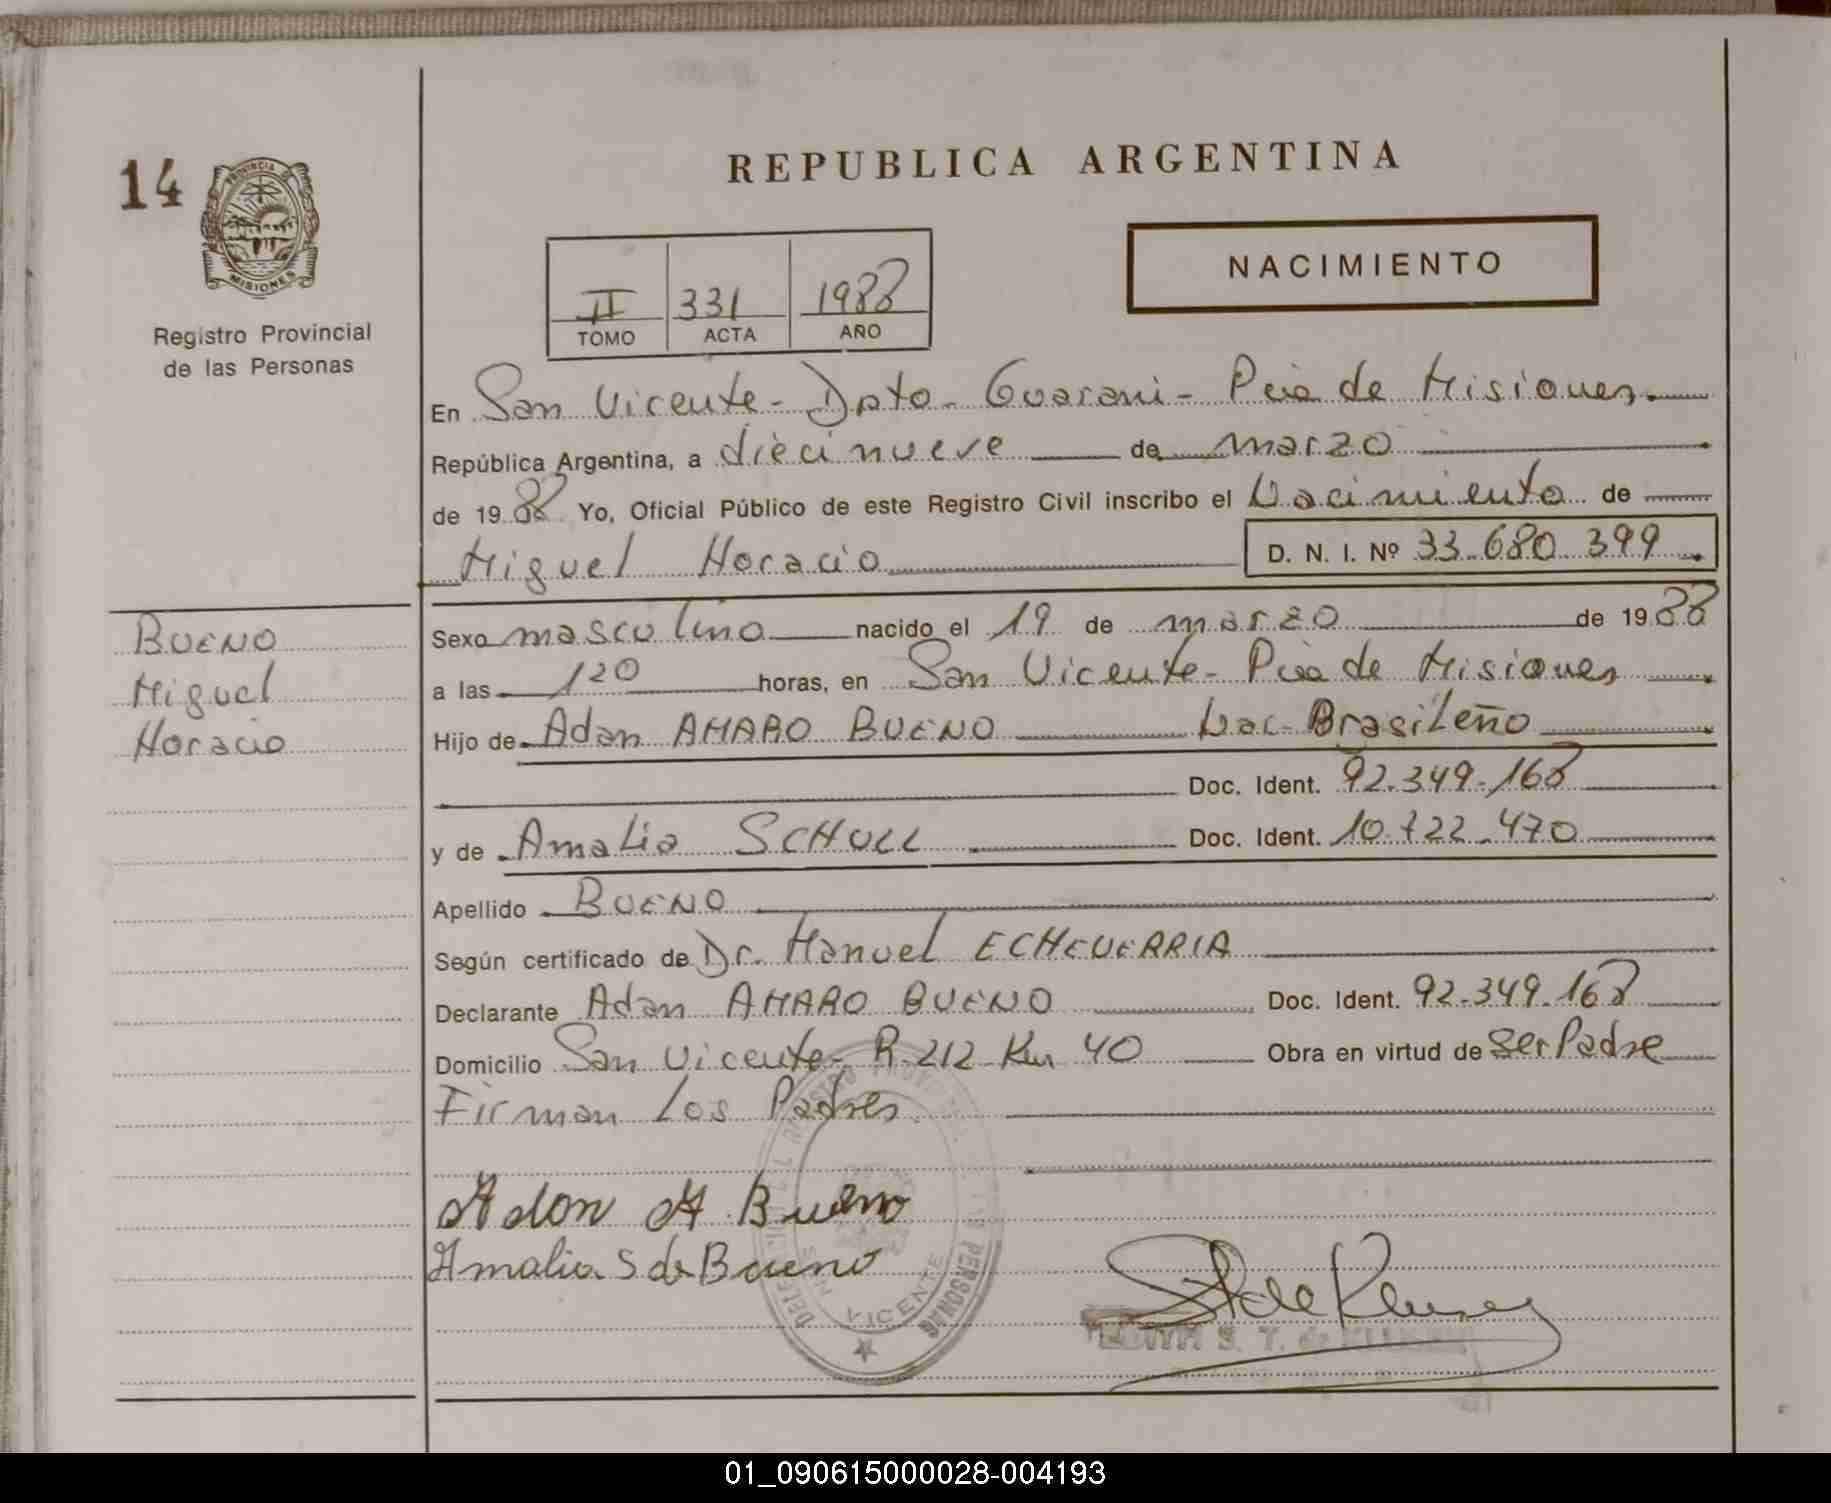 14
PROVINCIA DE
MISIONES
Registro Provincial
de las Personas
REPUBLICA ARGENTINA
II 331 1988
TOMO ACTA AÑO
NACIMIENTO
En San Vicente - Dpto - Guarani - Pcia de Misiones.
República Argentina, a diecinueve de marzo
de 1988 Yo, Oficial Público de este Registro Civil inscribo el Nacimiento de
Miguel Horacio D. N. I. Nº 33.680.399
BUENO
Miguel
Horacio
Sexo masculino nacido el 19 de marzo de 1988
a las 120 horas, en San Vicente - Pcia de Misiones
Hijo de Adan AMARO BUENO Nac. Brasileño
Doc. Ident. 92.349.168
y de Amalia SCHULL Doc. Ident. 10.722.470
Apellido BUENO
Según certificado de Dr. Manuel ECHEVERRIA
Declarante Adan AMARO BUENO Doc. Ident. 92.349.168
Domicilio San Vicente - R. 212 Km 40 Obra en virtud de Ser Padre
Firman Los Padres
Adon A Bueno
Amalia S de Bueno
VICENTE
PERSONAS
S. T. de
01_090615000028-004193